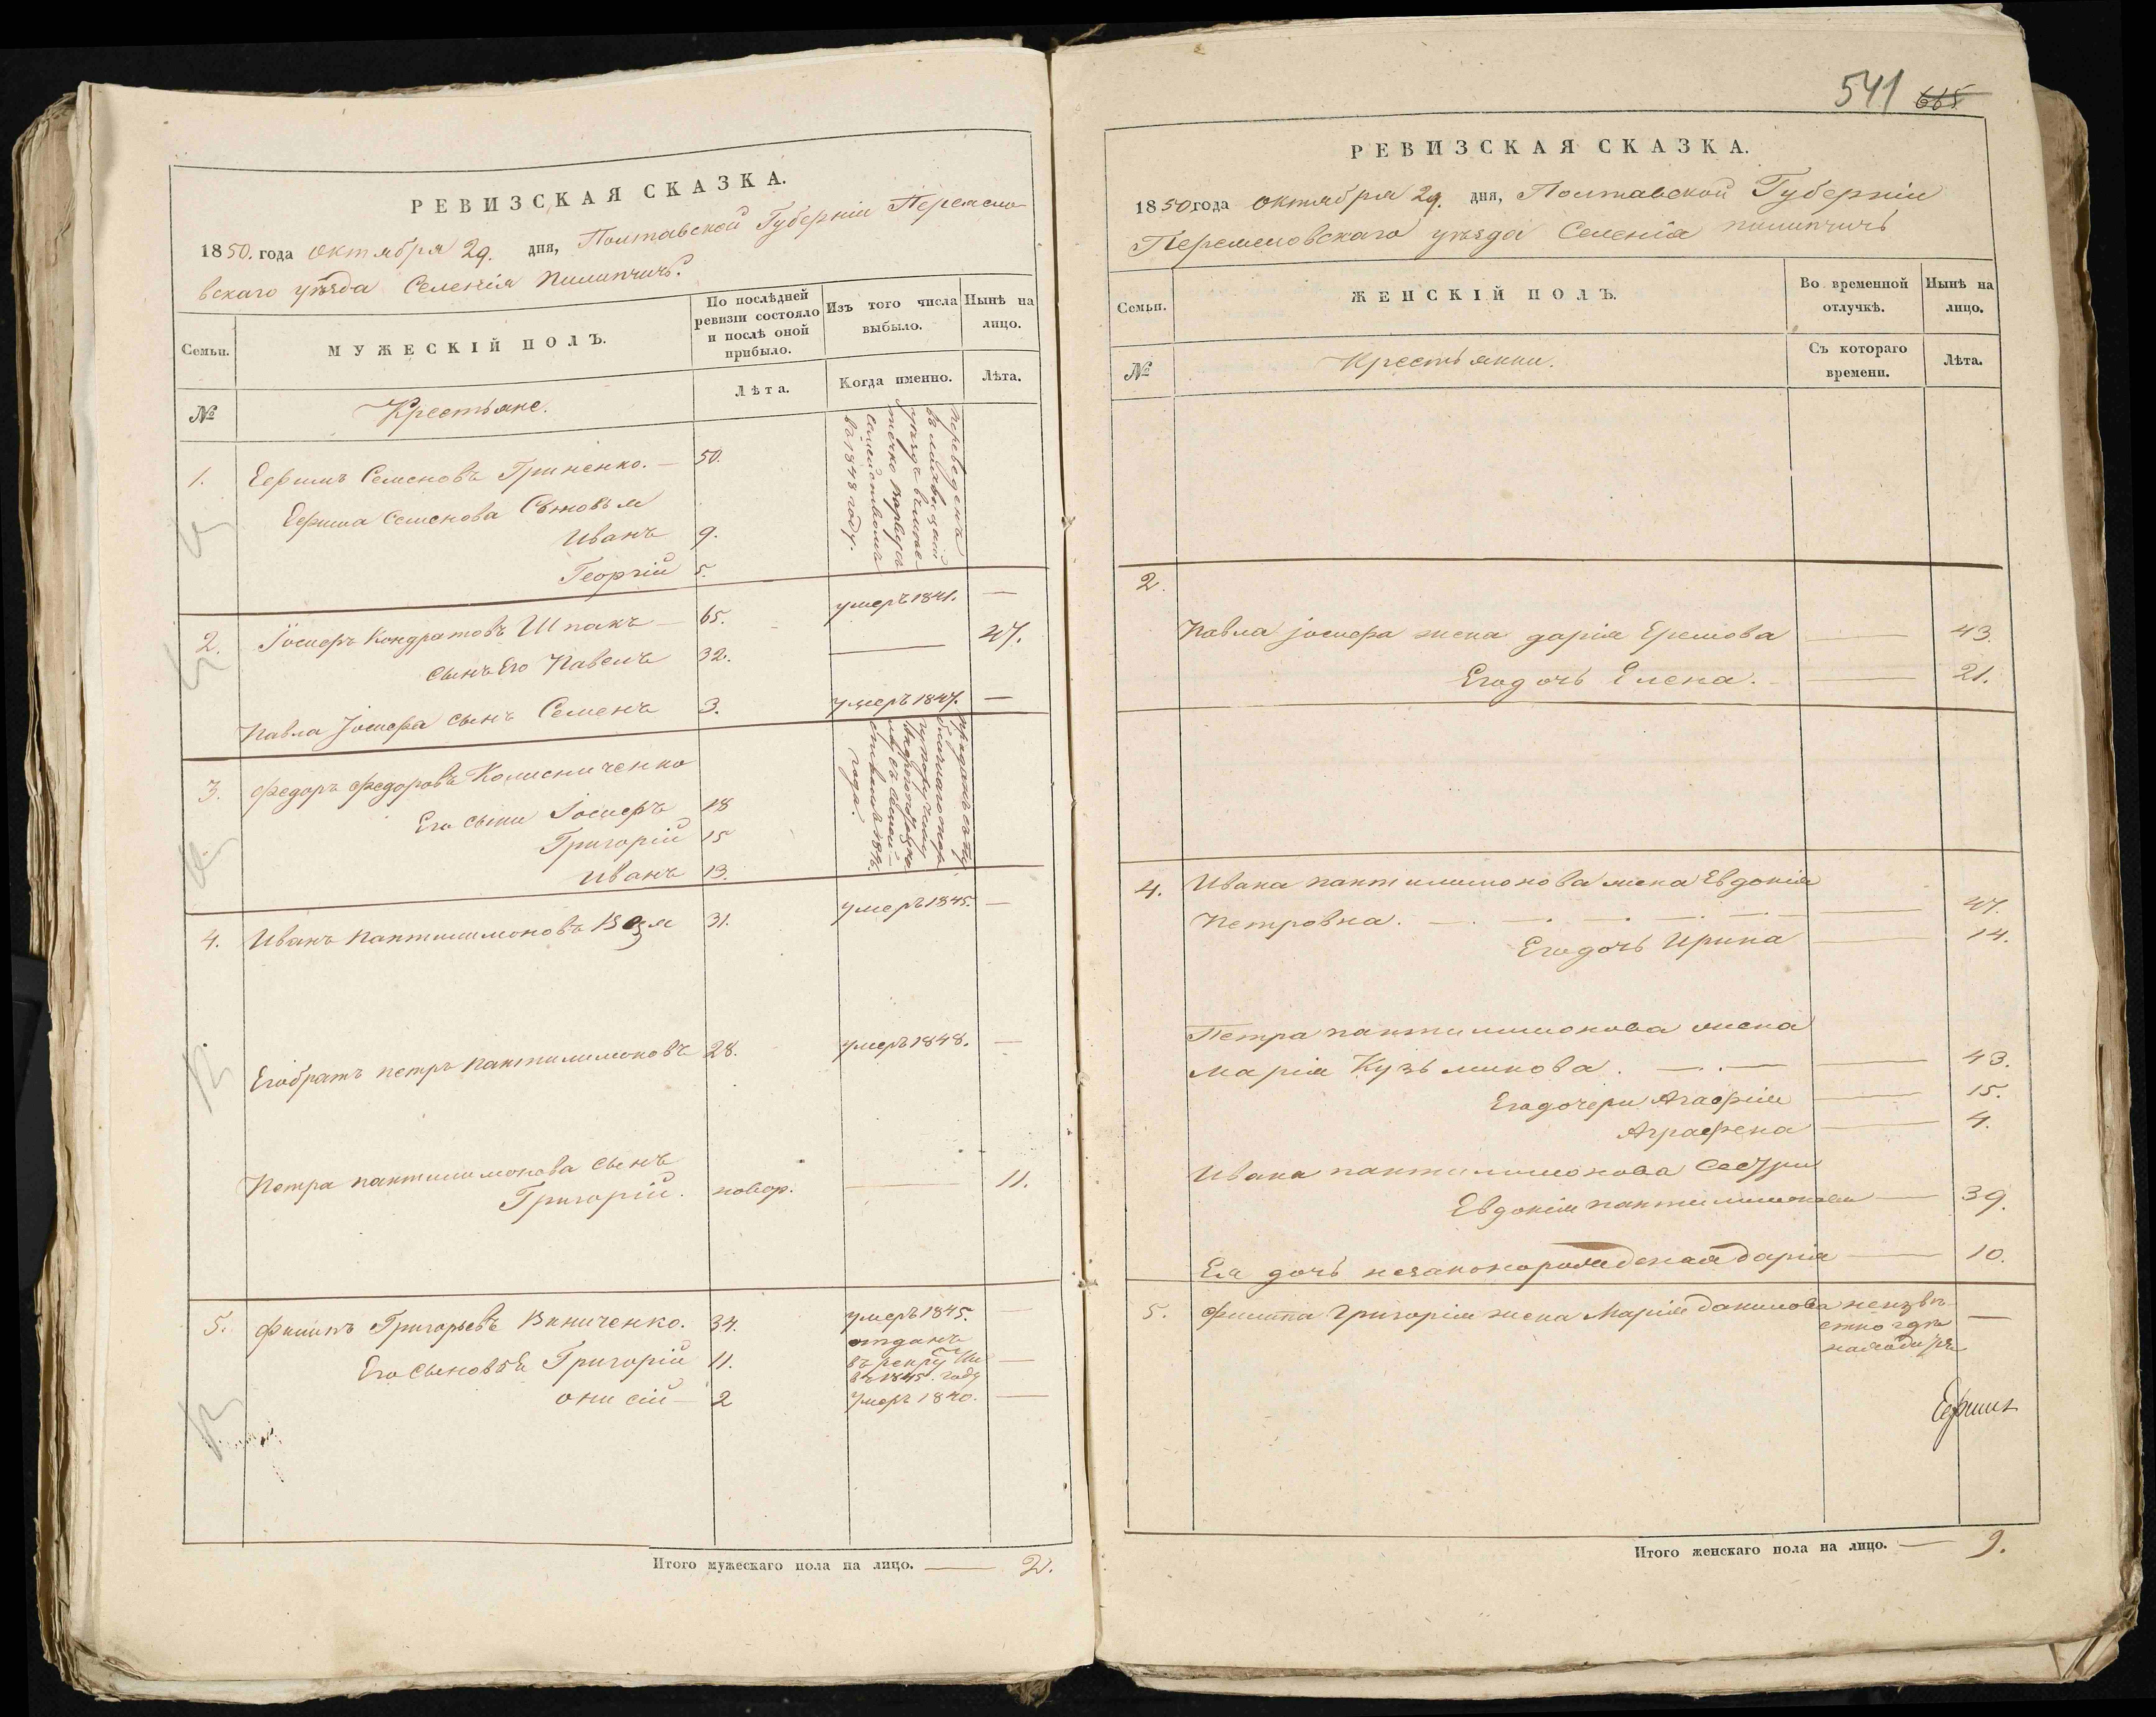 РЕВИЗСКАЯ СКАЗКА.
1850. года Октября 29. дня, Полтавской Губерніи Переясло-
вскаго уѣзда Селенія Пилипчичъ.
Семьи.
МУЖЕСКІЙ ПОЛЪ.
По послѣдней ревизіи состояло и послѣ оной прибыло.
Изъ того числа выбыло.
Нынѣ на лицо.
№
Крестьяне.
Лѣта.
Когда именно.
Лѣта.
1. Ефимъ Семеновъ Гриненко. — 50.
Ефима Семенова Сыновья
Иванъ 9.
Георгій 5.
переведенъ
въ
уѣздъ въ
семействомъ
въ 1848 году.
2. Іосифъ Кондратовъ Шпакъ — 65. умеръ 1841. —
сынъ Его Павелъ 32. — 47.
Павла Іосифа сынъ Семенъ 3. умеръ 1847. —
3. Федоръ Федоровъ Колисниченко
Его сыни Іосифъ 18
Григорій 15
Иванъ 13.
года.
4. Иванъ Пантилимоновъ 31. умеръ 1845. —
Его братъ Петръ Пантилимоновъ 28. умеръ 1848. —
Петра Пантилимонова сынъ
Григорій. новор. — 11.
5. Филипъ Григорьевъ Виниченко. 34. умеръ 1845. —
Его Сыновья Григорій 11. отданъ
въ рекруты
въ 1845. году —
Онисій — 2 умеръ 1840. —
Итого мужескаго пола на лицо. — 2.
541 665.
РЕВИЗСКАЯ СКАЗКА.
1850 года Октября 29. дня, Полтавской Губерніи
Переясловскаго уѣзда Селенія Пилипчичъ
Семьи.
ЖЕНСКІЙ ПОЛЪ.
Во временной отлучкѣ.
Нынѣ на лицо.
№
Крестьянки.
Съ котораго времени.
Лѣта.
2.
Павла Іосифа жена Дарія Еремова — 43.
Его дочь Елена. — 21.
4. Ивана Пантилимонова жена Евдокія
Петровна. — 47.
Его дочь Ирина — 14.
Петра Пантилимонова жена
Марія Кузьминова. — 43.
Его дочери Агафія — 15.
Аграфена — 4.
Ивана Пантилимонова Сестри
Евдокія Пантилимонова — 39.
Ея дочь незаконорожденая Дарія — 10.
5. Филипа Григорія жена Марія Данилова неизвѣ-
стно гдѣ
находится —
Ефимъ
Итого женскаго пола на лицо. — 9.